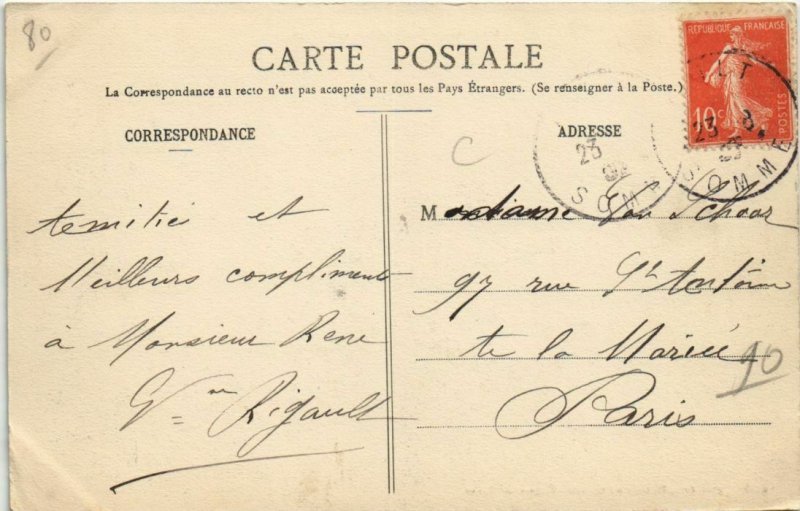 80
CARTE POSTALE
La Correspondance au recto n'est pas acceptée par tous les Pays Étrangers. (Se renseigner à la Poste.)
CORRESPONDANCE
temitié et
Meilleurs compliments
à Monsieur René
Vve Rigault
ADRESSE
Madame Van Schoor
97 rue St Antoine
"À la Mariée"
Paris
10
C
RÉPUBLIQUE FRANÇAISE
10c
POSTES
23
SOMME
23
SOMME